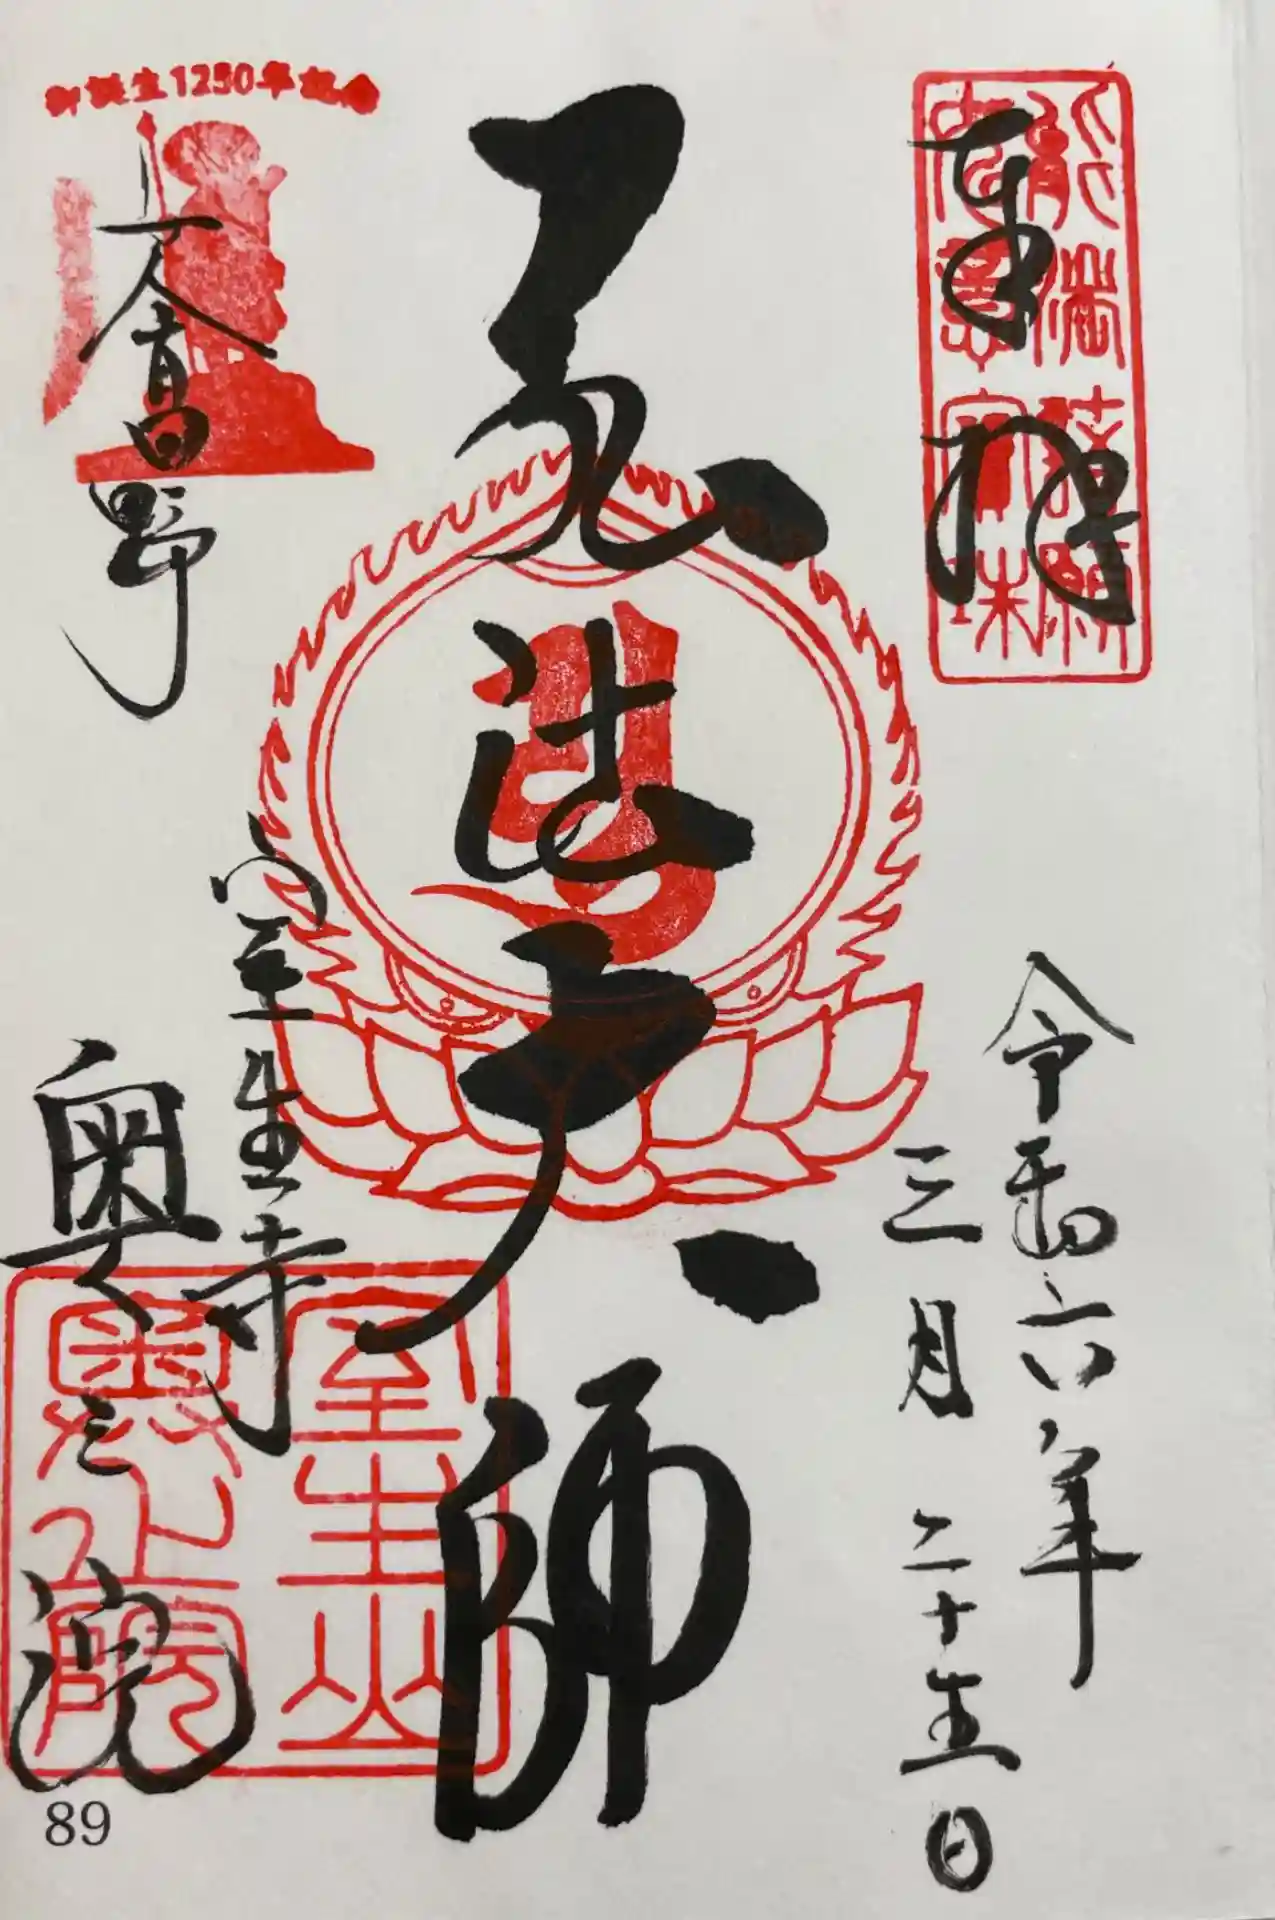 奉拝
令和六年
三月二十五日
弘法大師
御誕生1250年記念
女人高野
室生寺
奥之院
室生山
奥之院
89